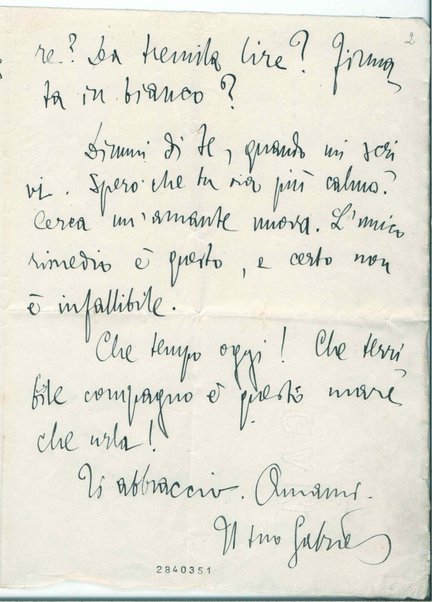 2
re? Da tremila lire? Firma
ta in bianco?
Dimmi di te, quando mi scri
vi. Spero che tu sia più calmo.
Cerca un'amante nuova. L'unico
rimedio è questo, e certo non
è infallibile.
Che tempo oggi! Che terri
bile compagno è questo mare
che urla!
Ti abbraccio. Amami.
Il tuo Gabriele
2840351